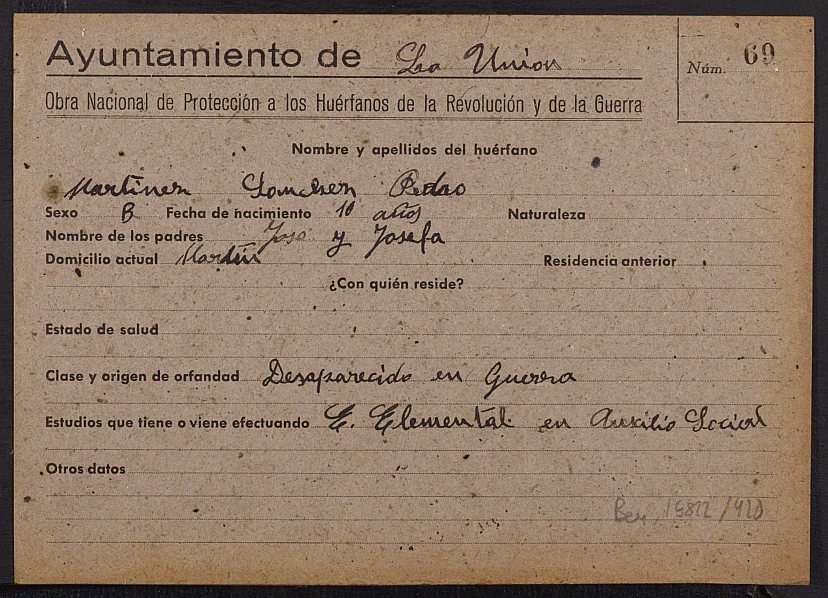 Ayuntamiento de La Union
Núm. 69
Obra Nacional de Protección a los Huérfanos de la Revolución y de la Guerra
Nombre y apellidos del huérfano
Martinez Sanchez Pedro
Sexo Fecha de nacimiento 10 años Naturaleza
Nombre de los padres Jose y Josefa
Domicilio actual Martin Residencia anterior
¿Con quién reside?
Estado de salud
Clase y origen de orfandad Desaparecido en Guerra
Estudios que tiene o viene efectuando E. Elemental en Auxilio Social
Otros datos